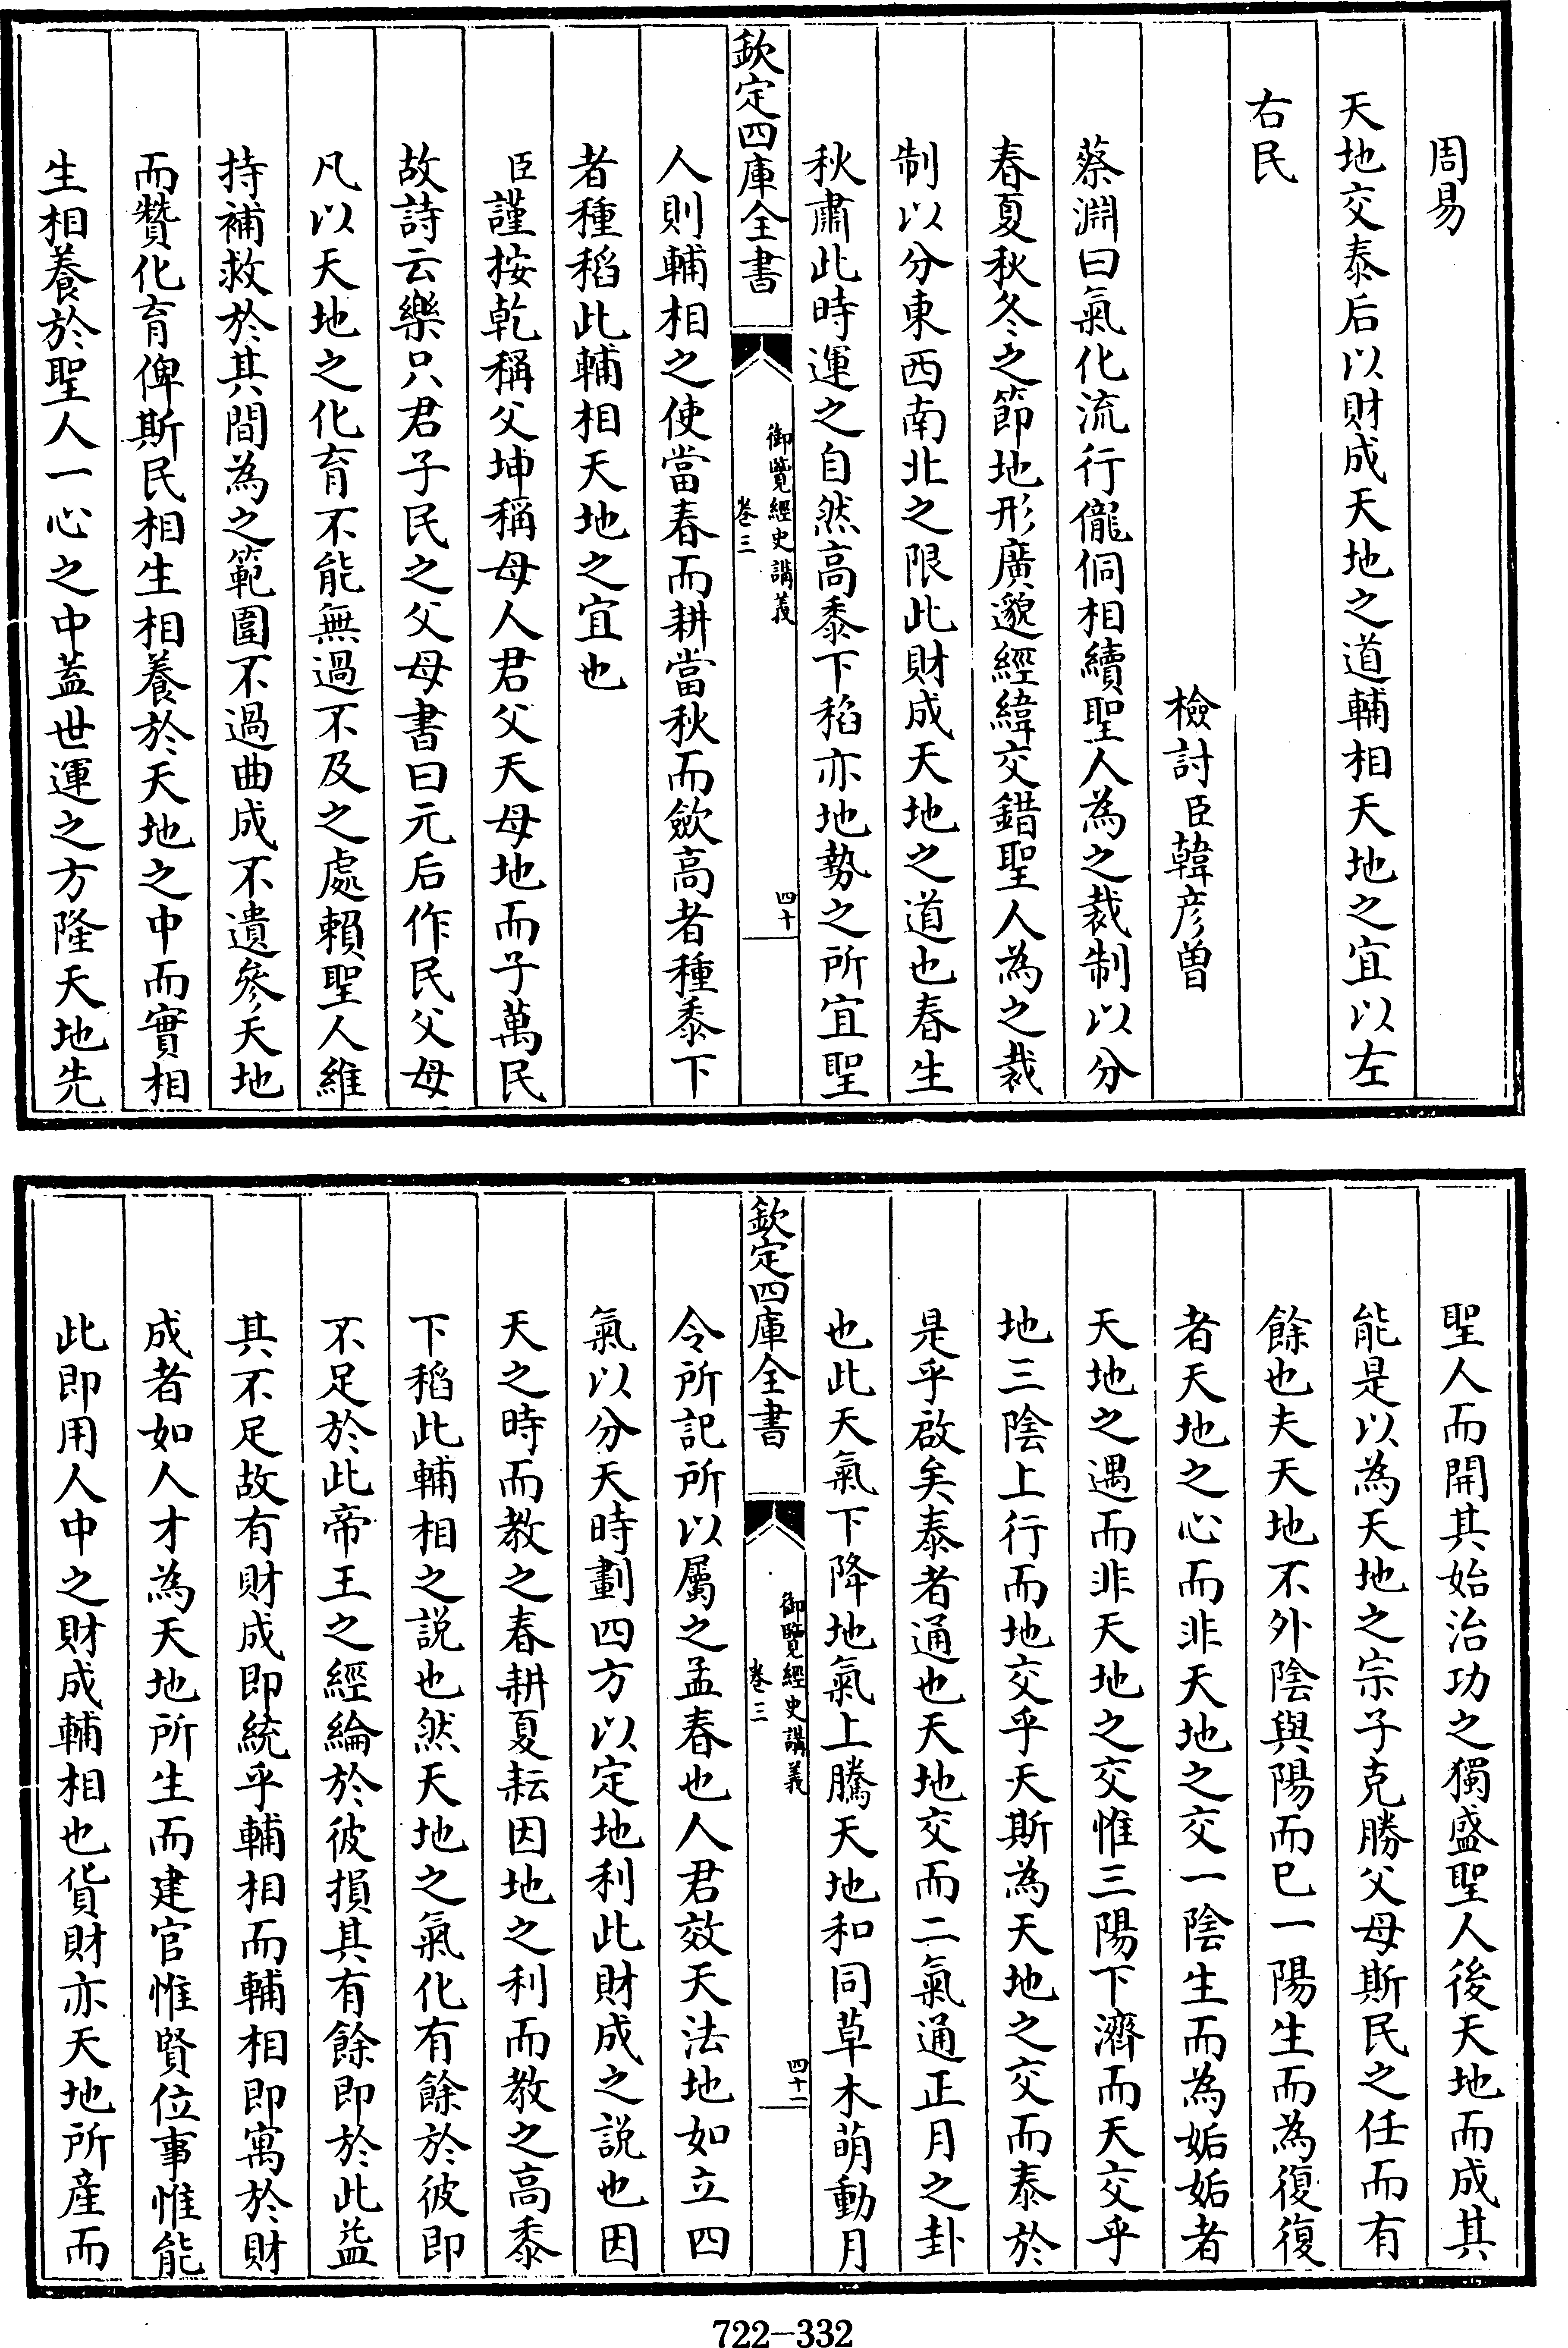 周易
天地交泰后以財成天地之道輔相天地之宜以左
右民
檢討臣韓彥曾
蔡淵曰氣化流行儱侗相續聖人為之裁制以分
春夏秋冬之節地形廣邈經緯交錯聖人為之裁
制以分東西南北之限此財成天地之道也春生
秋肅此時運之自然高黍下稻亦地勢之所宜聖
欽定四庫全書
御覽經史講義
卷三
四十
人則輔相之使當春而耕當秋而斂高者種黍下
者種稻此輔相天地之宜也
臣謹按乾稱父坤稱母人君父天母地而子萬民
故詩云樂只君子民之父母書曰元后作民父母
凡以天地之化育不能無過不及之處賴聖人維
持補救於其間為之範圍不過曲成不遺參天地
而贊化育俾斯民相生相養於天地之中而實相
生相養於聖人一心之中蓋世運之方隆天地先
聖人而開其始治功之獨盛聖人後天地而成其
能是以為天地之宗子克勝父母斯民之任而有
餘也夫天地不外陰與陽而已一陽生而為復復
者天地之心而非天地之交一陰生而為姤姤者
天地之遇而非天地之交惟三陽下濟而天交乎
地三陰上行而地交乎天斯為天地之交而泰於
是乎啟矣泰者通也天地交而二氣通正月之卦
也此天氣下降地氣上騰天地和同草木萌動月
欽定四庫全書
御覽經史講義
卷三
四十一
令所記所以屬之孟春也人君效天法地如立四
氣以分天時劃四方以定地利此財成之說也因
天之時而教之春耕夏耘因地之利而教之高黍
下稻此輔相之說也然天地之氣化有餘於彼即
不足於此帝王之經綸於彼損其有餘即於此益
其不足故有財成即統乎輔相而輔相即寓於財
成者如人才為天地所生而建官惟賢位事惟能
此即用人中之財成輔相也貨財亦天地所產而
722-332